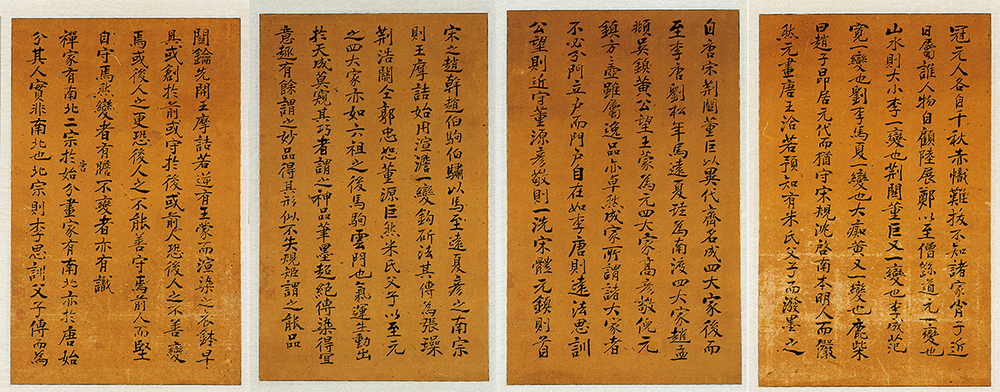 関鑰先開王摩詰若逆有王蒙而渲染之衣鉢早
具或創於前或守於後或前人恐後人之不善變
焉或後人之更恐後人之不能善守焉前人而堅
自守焉然變者有膽不變者亦有識
禪家有南北二宗於唐始分畫家有南北亦於唐始
分其人實非南北也北宗則李思訓父子傳而為
宋之趙幹趙伯駒伯驌以馬至遠夏彥之南宗
則王摩詰始用渲澹一變鉤斫法其傳為張璪
荊浩關仝郭忠恕董源巨然米氏父子以至元
之四大家亦如六祖之後馬駒雲門也氣運生動出
於天成莫窺其巧者謂之神品筆墨超絕傳染得宜
意趣有餘謂之妙品得其形似不失規矩謂之能品
自唐宋荊關董巨以異代齊名成四大家後而
至李唐劉松年馬遠夏珪為南渡四大家趙孟
頫吳鎮黃公望王蒙為元四大家高彥敬倪元
鎮方壺雖屬逸品亦卓然成家所謂諸大家者
不必分門立戶而門戶自在如李唐則遠法思訓
公望則近守董源彥敬則一洗宋體元鎮則首
冠元人各自千秋赤幟難拔不知諸家胄子近
日屬誰人物自顧陸展鄭以至僧繇道元一變也
山水則大小李一變也荊關董巨又一變也李成范
寬一變也劉李馬夏一變也大癡黃又一變也鹿柴
曰趙子昂居元代而猶守宋規沈啓南本明人而儼
然元畫唐王洽若預知有米氏父子而潑墨之